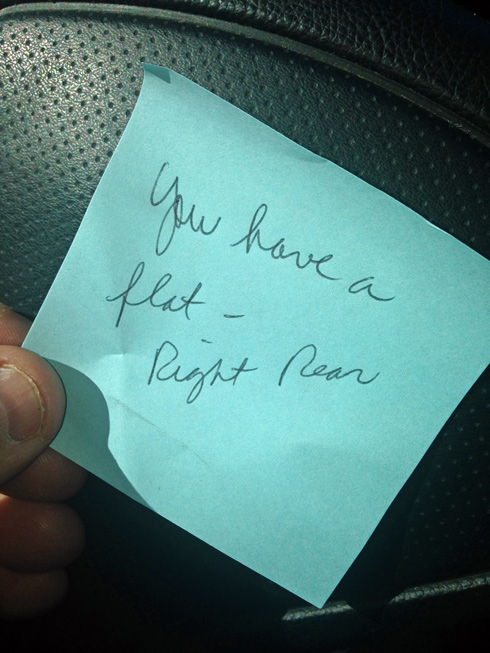 You have a
flat -
Right Rear